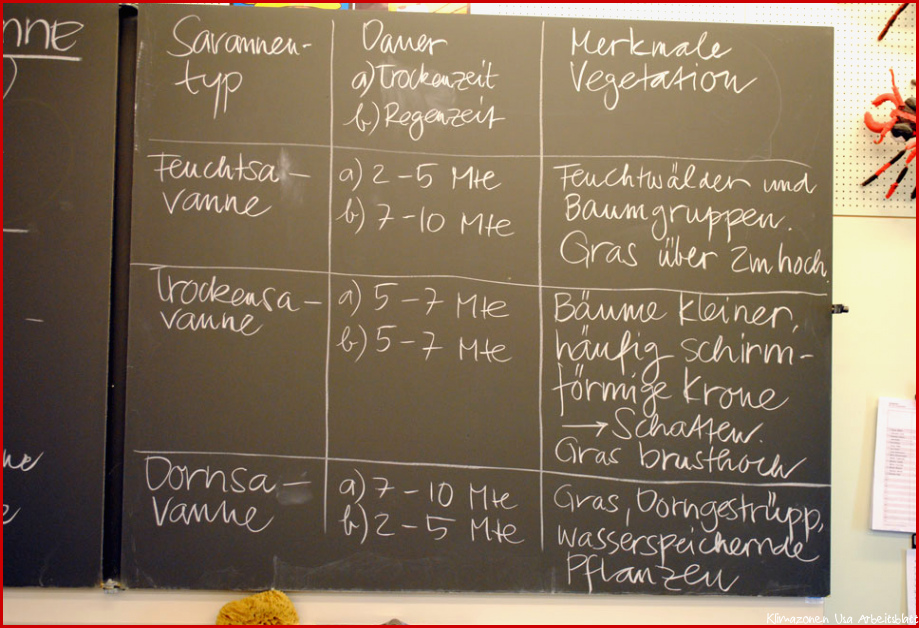 nne
)
Savannen-
typ
Dauer
a) Trockenzeit
b) Regenzeit
Merkmale
Vegetation
Feuchtsa-
vanne
a) 2-5 Mte
b) 7-10 Mte
Feuchtwälder und
Baumgruppen.
Gras über 2m hoch
Trockensa-
vanne
a) 5-7 Mte
b) 5-7 Mte
Bäume kleiner,
häufig schirm-
förmige Krone
→ Schatten.
Gras brusthoch
Dornsa-
vanne
a) 7-10 Mte
b) 2-5 Mte
Gras, Dorngestrüpp,
wasserspeichernde
Pflanzen
Klimazonen Usa Arbeitsblatt